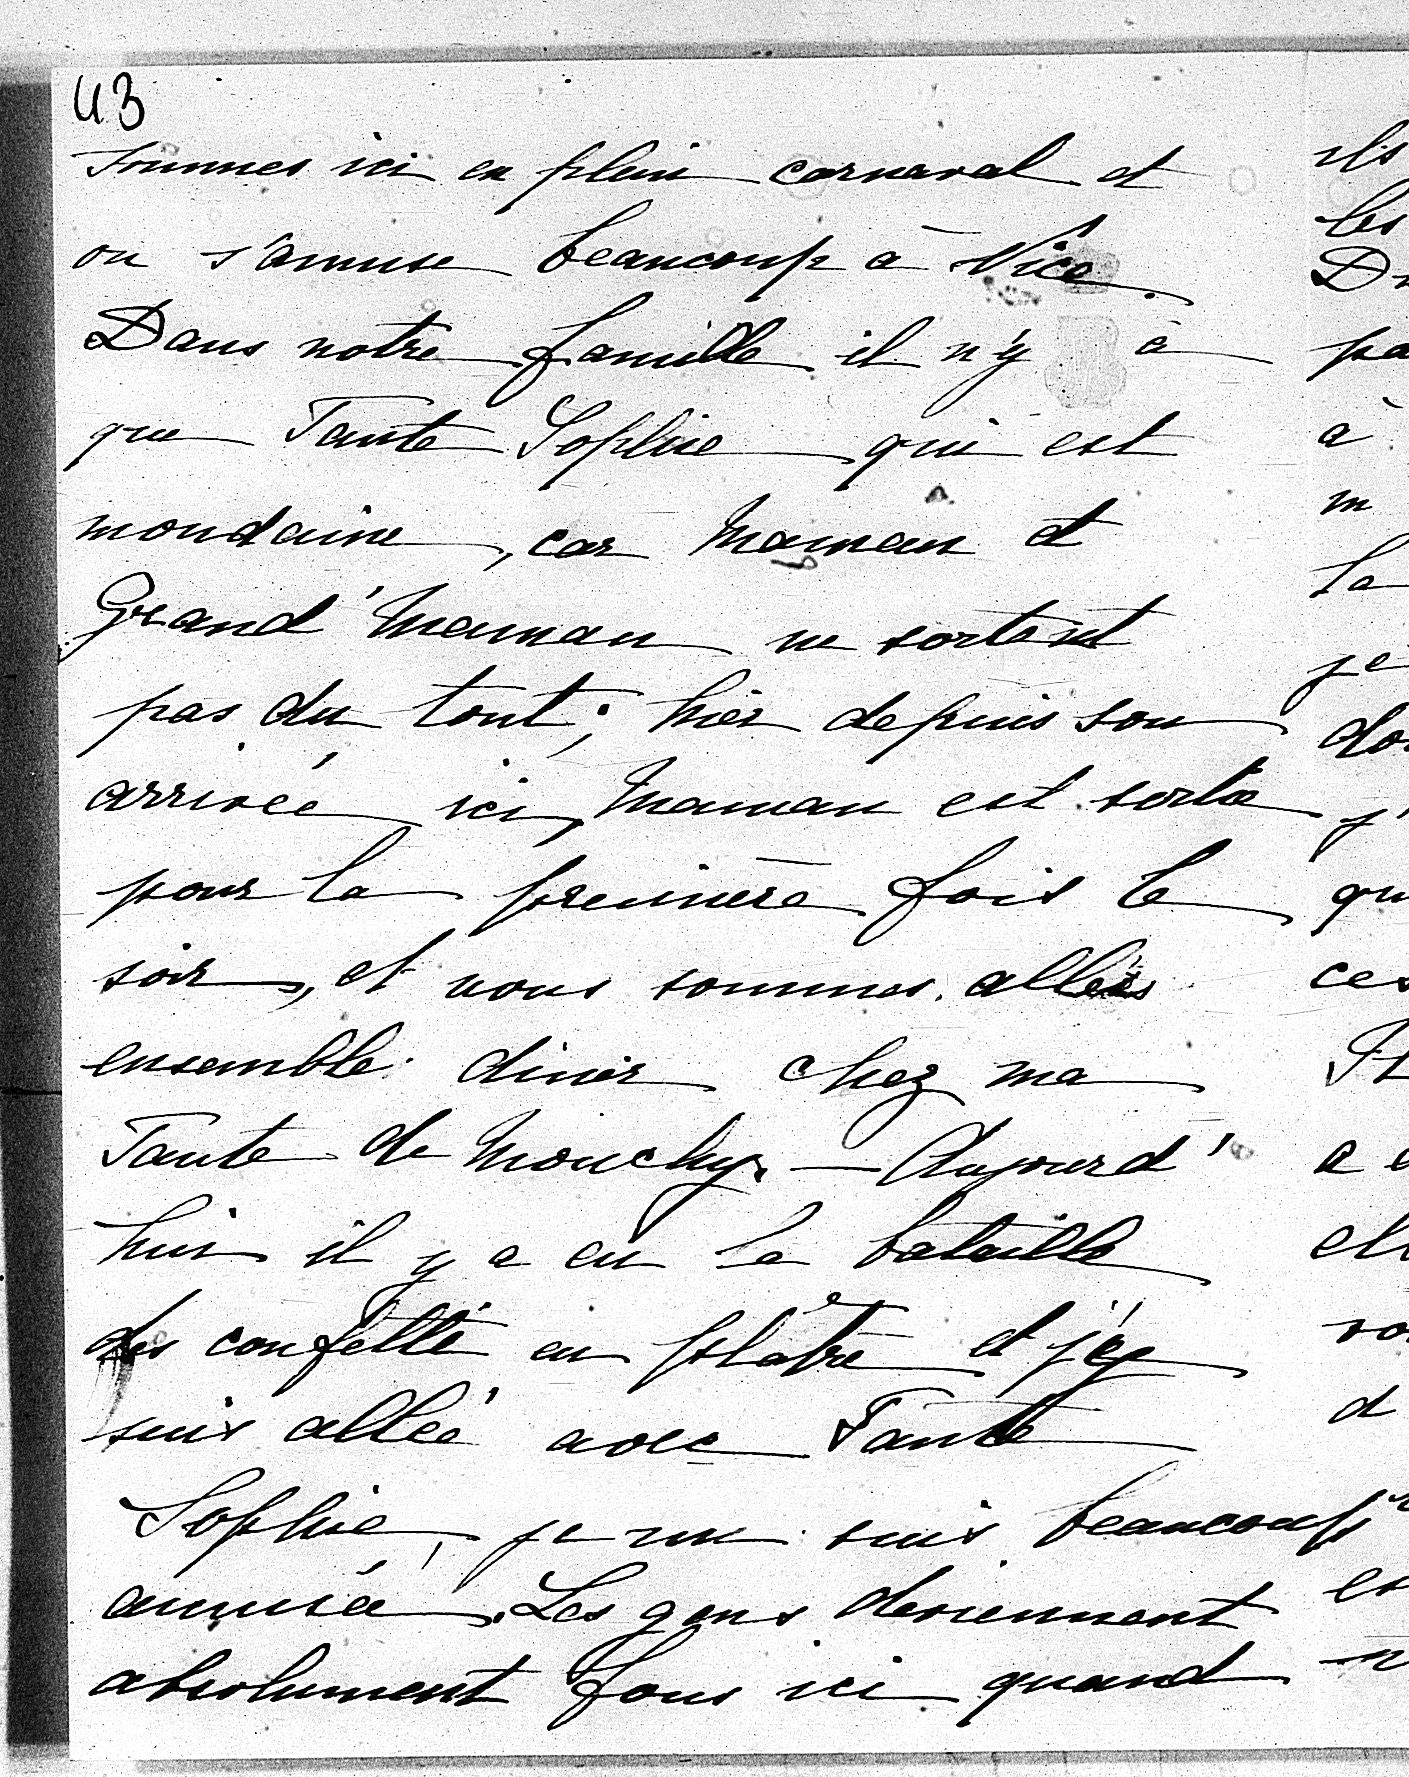 43
sommes ici en plein carnaval et
on s'amuse beaucoup à Nice.
Dans notre famille il n'y a
que Tante Sophie qui est
mondaine, car Maman et
Grand'Maman ne sortent
pas du tout; hier depuis son
arrivée ici, Maman est sortie
pour la première fois le
soir, et nous sommes allées
ensemble diner chez ma
Tante de Mouchy. — Aujourd'
hui il y a eu la bataille
des confetti en plâtre et j'y
suis allée avec Tante
Sophie, je me suis beaucoup
amusée. Les gens deviennent
absolument fous ici quand
ils
les
à
la
je